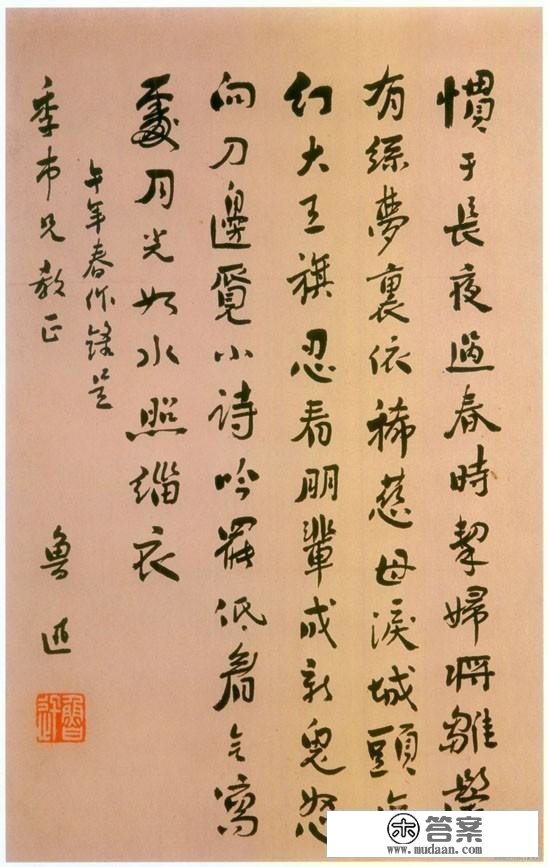 慣于長夜過春時挈婦將雛鬢
有絲夢裏依稀慈母淚城頭
幻大王旗忍看朋輩成新鬼怒
向刀邊覓小詩吟罷低眉无寫
處月光如水照緇衣
午年春作錄呈
季市兄教正
魯迅
魯迅
答案
www.mudaan.com